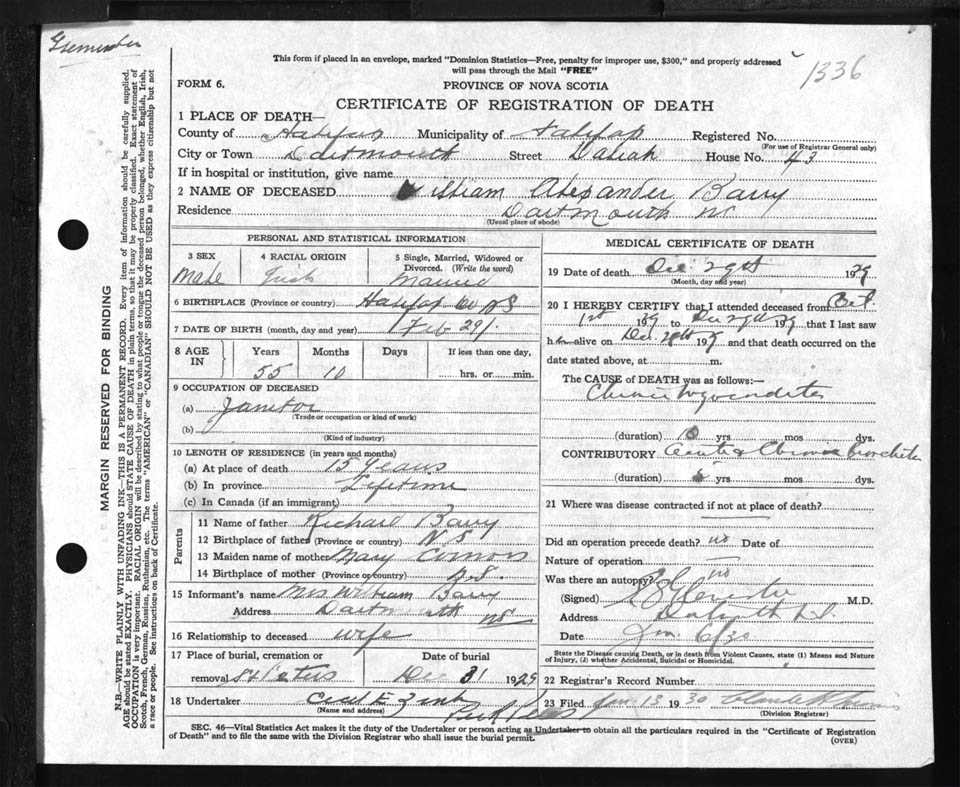 This form if placed in an envelope, marked "Dominion Statistics—Free, penalty for improper use, $300," and properly addressed
will pass through the Mail "FREE"
1336
FORM 6.
PROVINCE OF NOVA SCOTIA
CERTIFICATE OF REGISTRATION OF DEATH
1 PLACE OF DEATH—
County of Halifax Municipality of Halifax Registered No.
(For use of Registrar General only)
City or Town Dartmouth Street House No. 43
If in hospital or institution, give name
2 NAME OF DECEASED William Alexander Barry
Residence Dartmouth NS
(Usual place of abode)
PERSONAL AND STATISTICAL INFORMATION
3 SEX 4 RACIAL ORIGIN 5 Single, Married, Widowed or Divorced. (Write the word)
Male Irish Married
6 BIRTHPLACE (Province or country) Halifax Co NS
7 DATE OF BIRTH (month, day and year) Feb 29
8 AGE IN Years Months Days If less than one day,
55 10 hrs. or min.
9 OCCUPATION OF DECEASED
(a) Janitor
(Trade or occupation or kind of work)
(b)
(Kind of industry)
10 LENGTH OF RESIDENCE (in years and months)
(a) At place of death 15 years
(b) In province Lifetime
(c) In Canada (if an immigrant)
Parents
11 Name of father Richard Barry
12 Birthplace of father (Province or country) N S
13 Maiden name of mother Mary Connors
14 Birthplace of mother (Province or country) N.S.
15 Informant's name Mrs William Barry
Address Dartmouth NS
16 Relationship to deceased wife
17 Place of burial, cremation or removal St Peters Date of burial Dec 31 1929
18 Undertaker Cecil E Zink
(Name and address)
MEDICAL CERTIFICATE OF DEATH
19 Date of death Dec 29th 1929
(Month, day and year)
20 I HEREBY CERTIFY that I attended deceased from Oct.
1st 1929 to Dec 29th 1929 that I last saw
h alive on Dec 29th 1929 and that death occurred on the
date stated above, at m.
The CAUSE of DEATH was as follows:—
Chronic Myocarditis
(duration) yrs mos dys.
CONTRIBUTORY Acute & Chronic Bronchitis
(duration) yrs mos dys.
21 Where was disease contracted if not at place of death?
Did an operation precede death? no Date of
Nature of operation
Was there an autopsy? no
(Signed) M.D.
Address Dartmouth N.S.
Date Jan. 6/30
State the Disease causing Death, or in death from Violent Causes, state (1) Means and Nature
of Injury, (2) whether Accidental, Suicidal or Homicidal.
22 Registrar's Record Number
23 Filed Jan 13 1930
(Division Registrar)
SEC. 46—Vital Statistics Act makes it the duty of the Undertaker or person acting as Undertaker to obtain all the particulars required in the "Certificate of Registration
of Death" and to file the same with the Division Registrar who shall issue the burial permit.
(OVER)
MARGIN RESERVED FOR BINDING
N.B.—WRITE PLAINLY WITH UNFADING INK—THIS IS A PERMANENT RECORD. Every item of information should be carefully supplied.
AGE should be stated EXACTLY. PHYSICIANS should STATE CAUSE OF DEATH in plain terms, so that it may be properly classified. Exact statement of
OCCUPATION is very important. RACIAL ORIGIN will be described by stating to what people or tongue the deceased person belonged, whether English, Irish,
Scotch, French, German, Russian, Ruthenian, etc. The terms "AMERICAN" or "CANADIAN" SHOULD NOT BE USED as they express citizenship but not
a race or people. See instructions on back of Certificate.